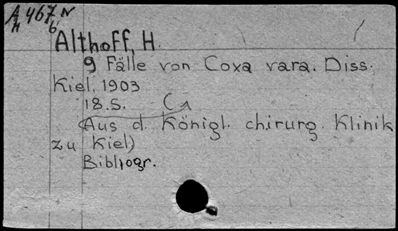 A 467 N
Althoff, H.
9 Fälle von Coxa vara. Diss.
Kiel. 1903
18.S.
(Aus d. Königl. chirurg. Klinik
zu Kiel)
Bibliogr.